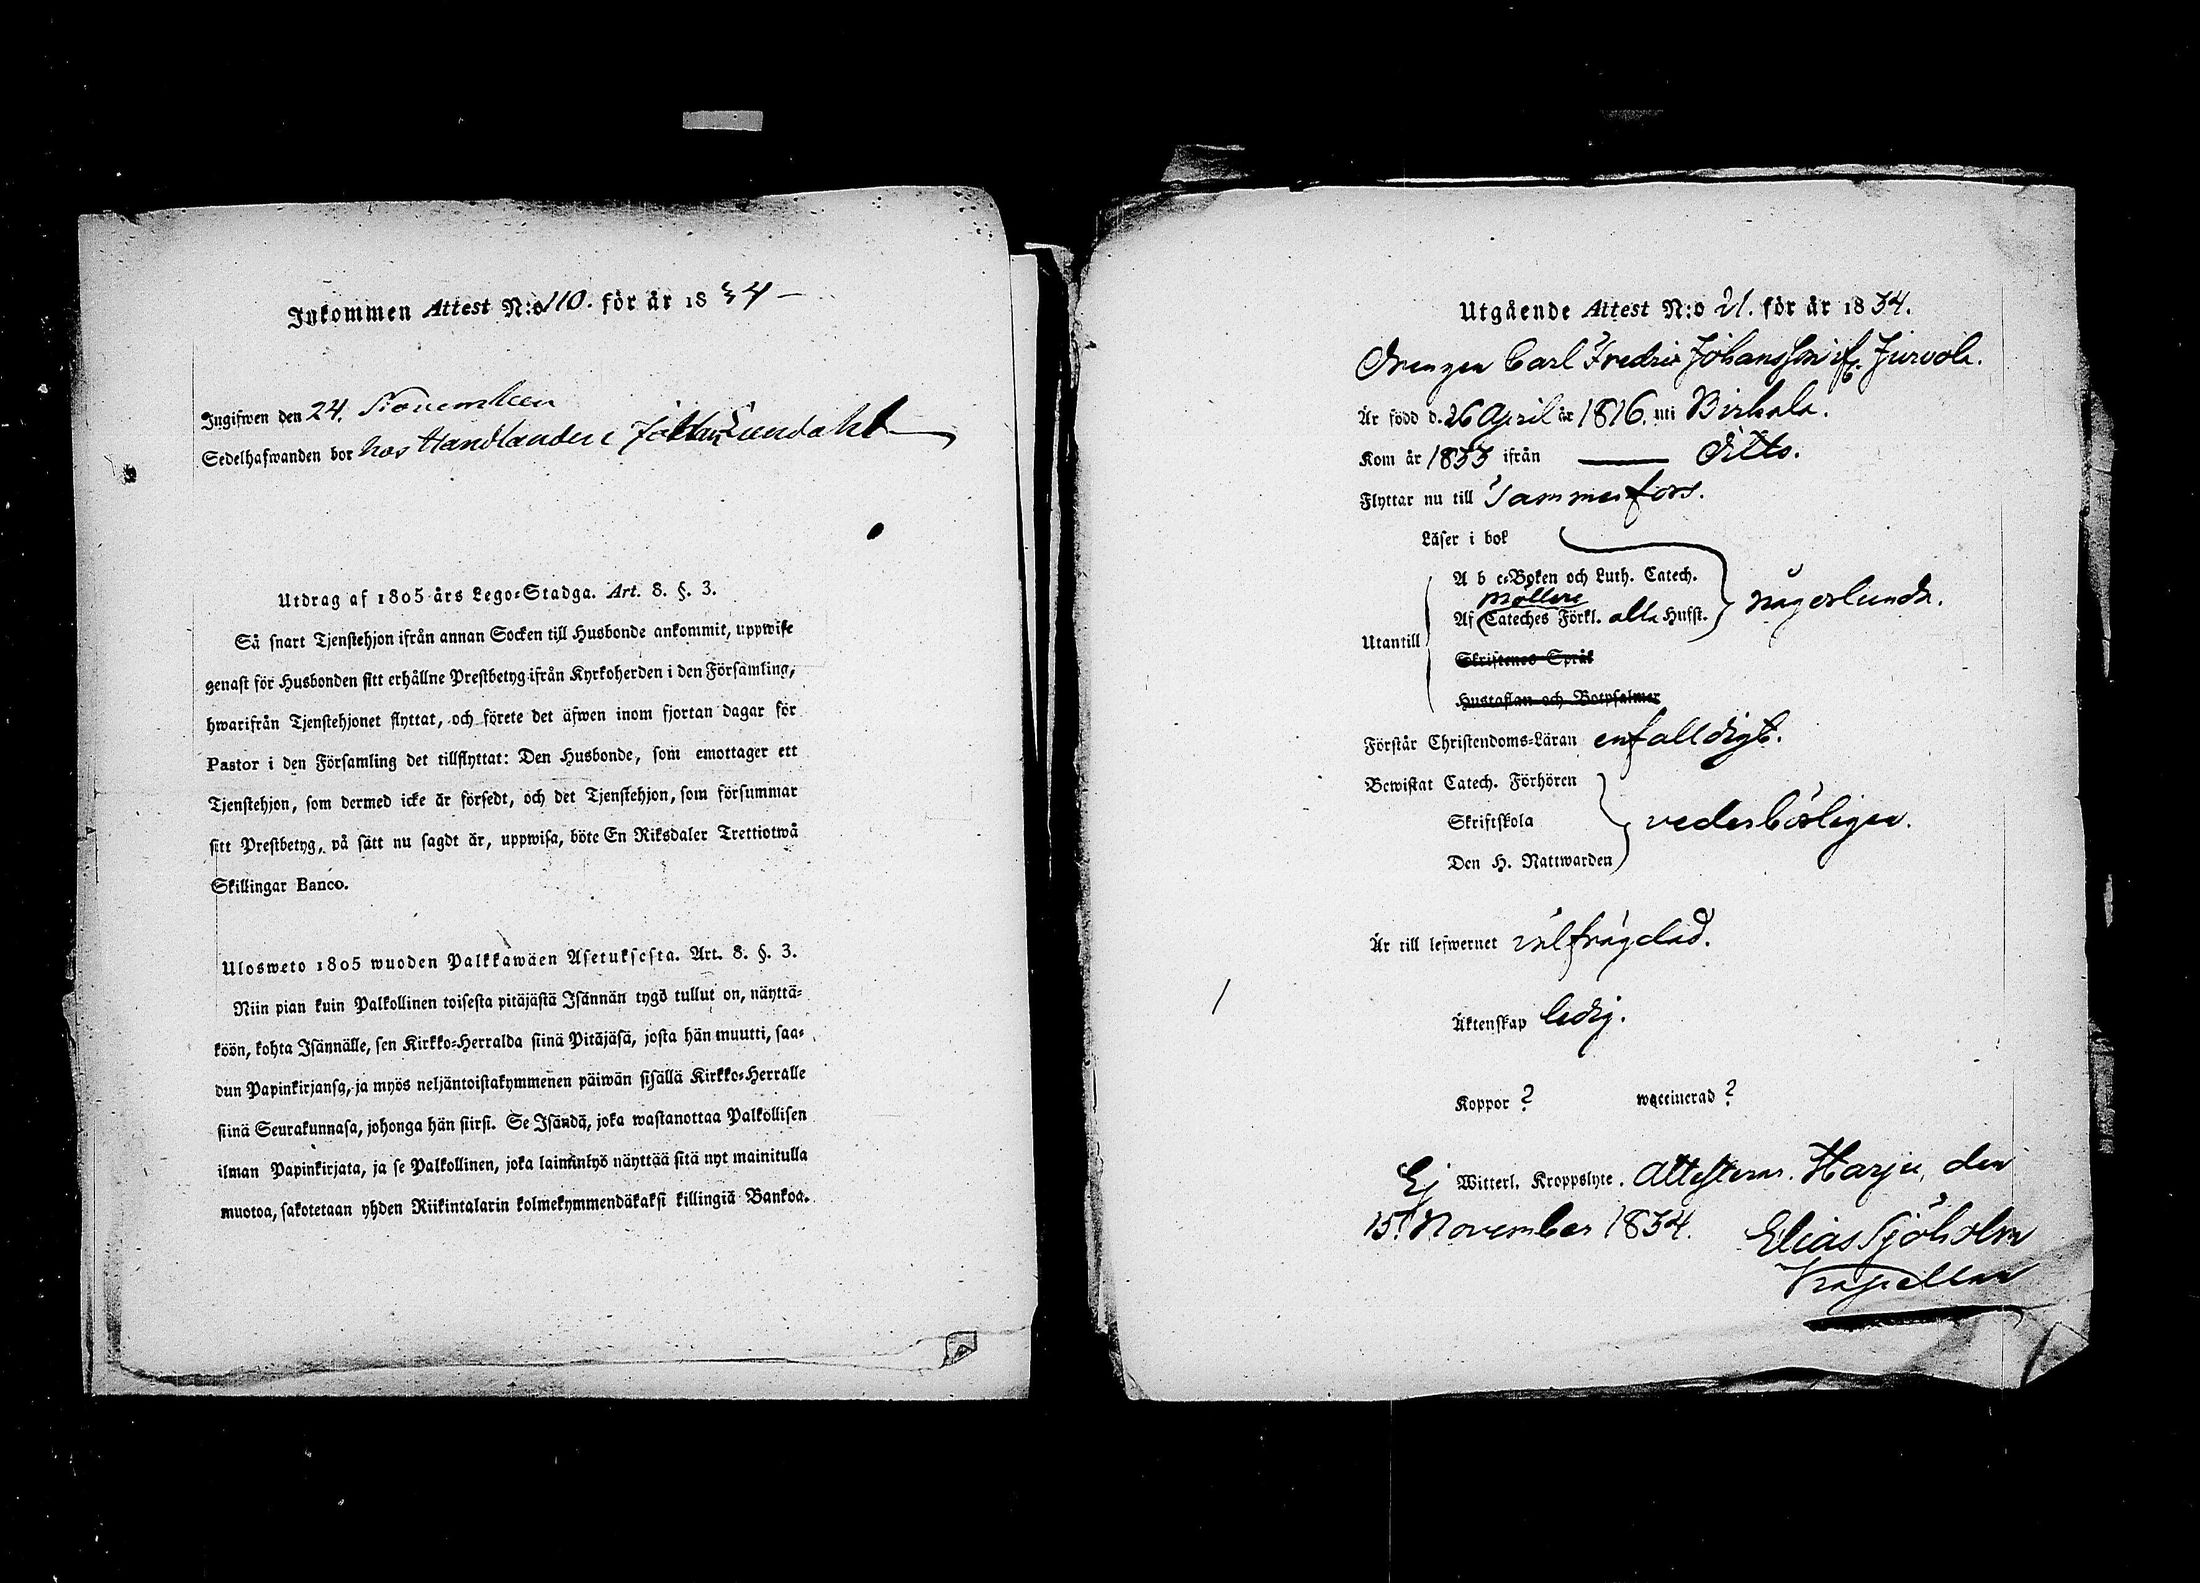 Inkommen Attest N:o 110. för år 1834 –
Ingifwen den 24. November
Sedelhafwanden bor hos Handlanden Johan Lundahl
Utdrag af 1805 års Lego-Stadga. Art. 8. §. 3.
Så snart Tjenstehjon ifrån annan Socken till Husbonde ankommit, uppwise
genast för Husbonden sitt erhållne Prestbetyg ifrån Kyrkoherden i den Församling,
hwarifrån Tjenstehjonet flyttat, och förete det äfwen inom fjortan dagar för
Pastor i den Församling det tillflyttat: Den Husbonde, som emottager ett
Tjenstehjon, som dermed icke är försedt, och det Tjenstehjon, som försummar
sitt Prestbetyg, på sätt nu sagdt är, uppwisa, böte En Riksdaler Trettiotwå
Skillingar Banco.
Ulosweto 1805 wuoden Palkkawäen Asetuksesta. Art. 8. §. 3.
Niin pian kuin Palkollinen toisesta pitäjästä Isännän tygö tullut on, näyttä-
köön, kohta Isännälle, sen Kirkko-Herralda siinä Pitäjäsä, josta hän muutti, saa-
dun Papinkirjansa, ja myös neljäntoistakymmenen päiwän sisällä Kirkko-Herralle
siinä Seurakunnasa, johonga hän siirsi. Se Isändä, joka wastanottaa Palkollisen
ilman Papinkirjata, ja se Palkollinen, joka laiminlyö näyttää sitä nyt mainitulla
muotoa, sakotetaan yhden Riikintalarin kolmekymmendäkaksi killingiä Bankoa.
Utgående Attest N:o 21. för år 1834.
Drengen Carl Fredric Johansson if. Jurvola.
Är född d. 26 April år 1816. uti Birkala.
Kom år 1833 ifrån — Ditto.
Flyttar nu till Tammerfors.
Läser i bok
A b c-Boken och Luth. Catech.
Möllers
Af Cateches Förkl. alla Hufst. någorlunda.
Utantill
Skriftenes Språk
Hustaflan och Botpsalmer
Förstår Christendoms-Läran enfaldigt.
Bewistat Catech. Förhören
Skriftskola vederbörligen.
Den H. Nattwarden
Är till lefwernet välfrägdad.
Äktenskap ledig.
Koppor ? waccinerad ?
Ej Witterl. Kroppslyte. Attesterar. Harju, den
15. November 1834. Elias Sjöholm
Kapellan